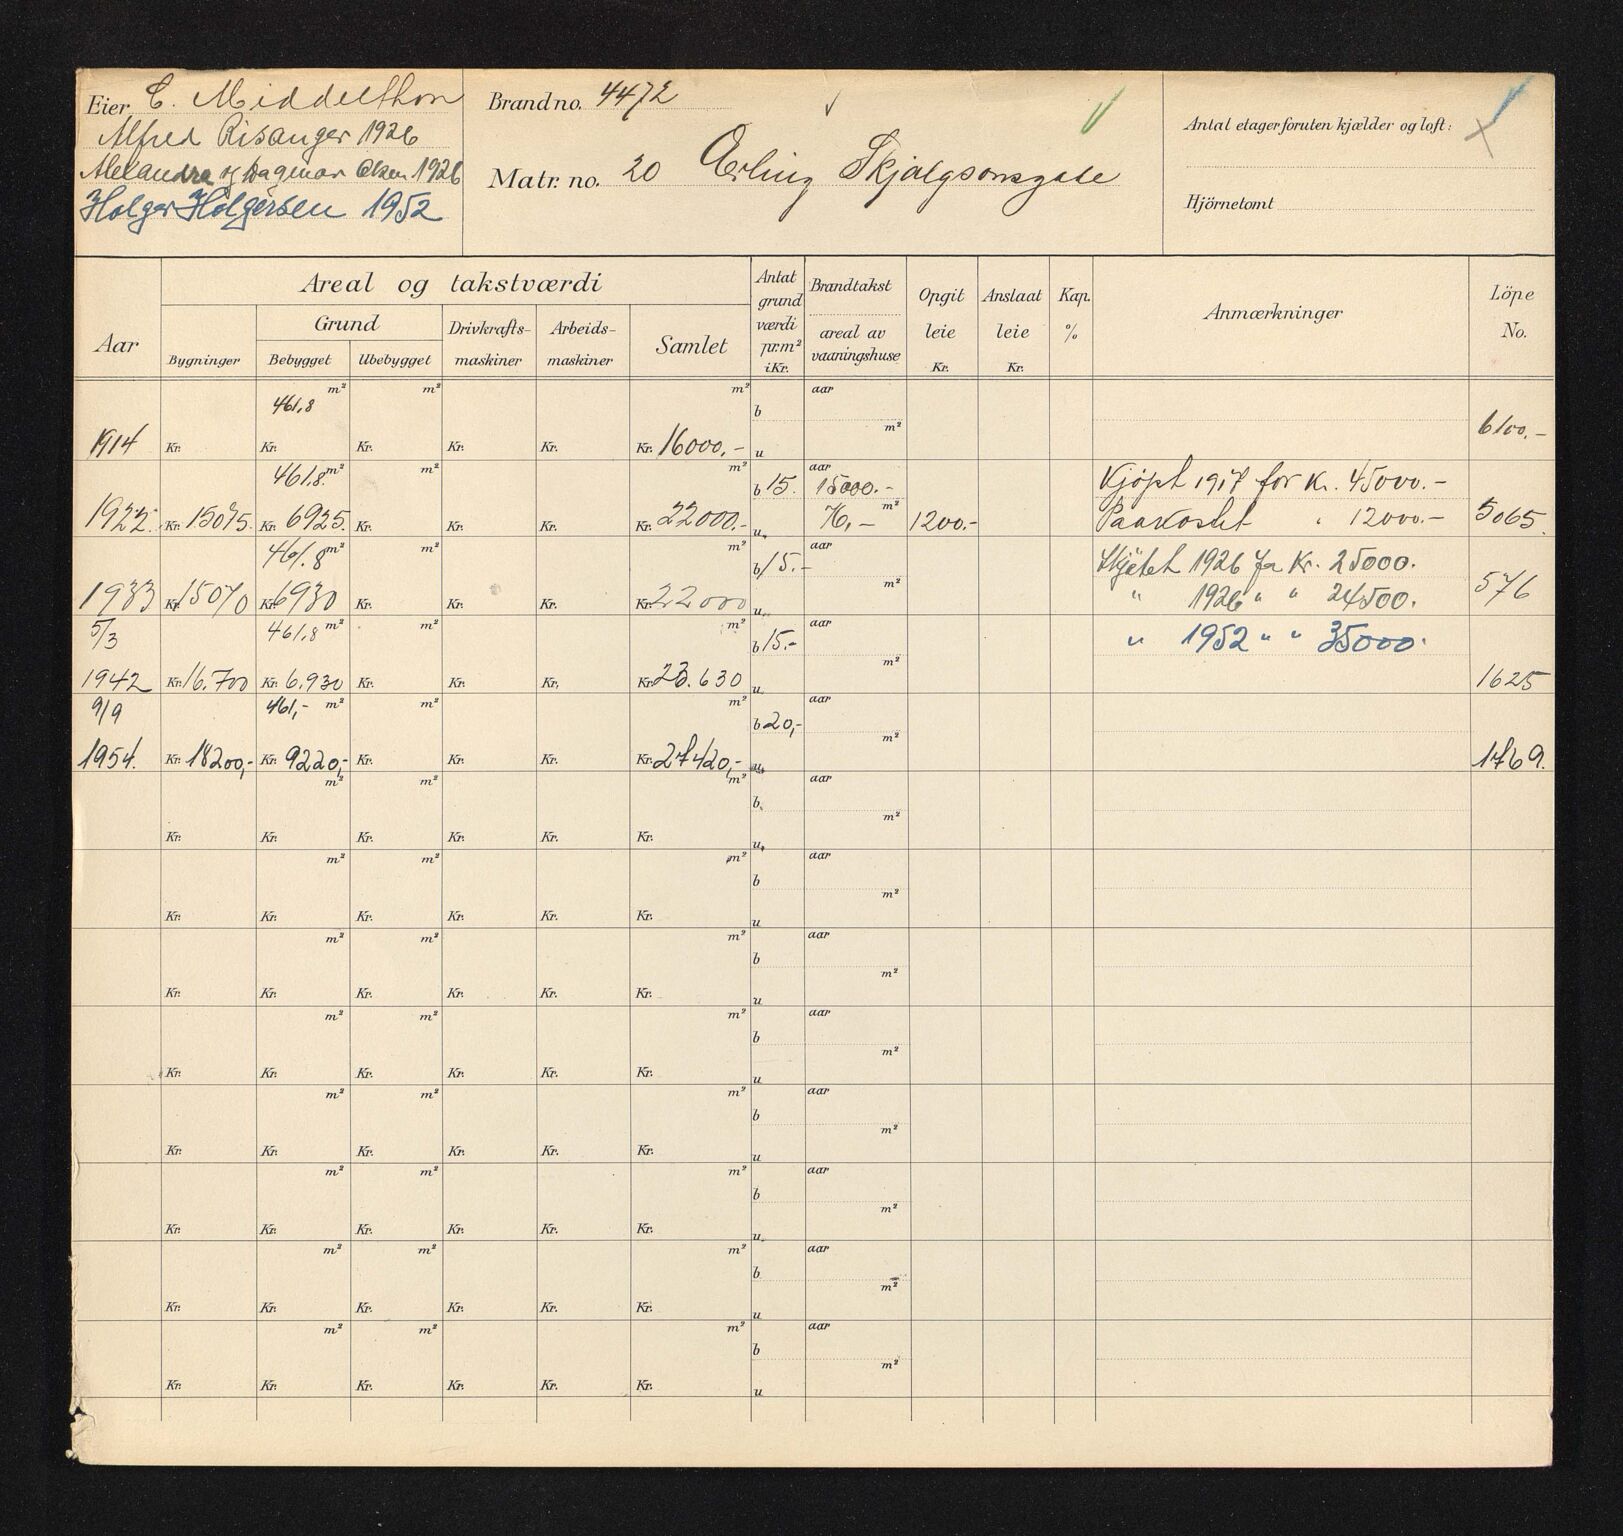 Eier C. Middelthon
Alfred Risanger 1926
Alexandra og Dagmar Olsen 1926
Holger Holgersen 1952
Brand no. 4472
Matr. no. 20 Erling Skjalgsonsgate
Antal etager foruten kjælder og loft:
Hjörnetomt
Aar
Areal og takstværdi
Bygninger
Grund
Bebygget
Ubebygget
Drivkrafts-
maskiner
Arbeids-
maskiner
Samlet
Antat
grund
værdi
pr.m²
i Kr.
Brandtakst
areal av
vaaningshuse
Opgit
leie
Kr.
Anslaat
leie
Kr.
Kap.
%
Anmærkninger
Löpe
No.
461,8 m² m² m² b aar
m²
1914 Kr. Kr. Kr. Kr. Kr. Kr. 16000,- u 6100,-
461,8 m² m² m² b 15. aar 15000.- Kjöpt 1917 for Kr. 45000.-
1922. Kr. 15075. Kr. 6925. Kr. Kr. 22000.- u. 76,- m² 1200.- Paakostet " 12000.- 5065.
461.8 m² m² m² b 15.- aar Skjötet 1926 fa Kr. 25000.
1933 Kr. 15070 Kr. 6930 Kr. Kr. Kr. Kr. 22000 u. m² " 1926 " " 24500. 576
5/3 461,8 m² m² m² b 15.- aar " 1952 " " 35000.
1942 Kr. 16.700 Kr. 6.930 Kr. Kr. Kr. Kr. 23.630 u m² 1625
9/9 461,- m² m² m² b 20,- aar
1954. Kr. 18200,- Kr. 9220,- Kr. Kr. Kr. Kr. 27420,- u. m² 1769.
m² m² m² b. aar
Kr. Kr. Kr. Kr. Kr. Kr. u. m²
m² m² m² b aar
Kr. Kr. Kr. Kr. Kr. Kr. u m²
m² m² m² b aar
Kr. Kr. Kr. Kr. Kr. Kr. u m²
m² m² m² b aar
Kr. Kr. Kr. Kr. Kr. Kr. u m²
m² m² m² b aar
Kr. Kr. Kr. Kr. Kr. Kr. u m²
m² m² m² b aar
Kr. Kr. Kr. Kr. Kr. Kr. u. m²
m² m² m² b aar
Kr. Kr. Kr. Kr. Kr. Kr. u m²
m² m² m² b aar
Kr. Kr. Kr. Kr. Kr. Kr. u m²